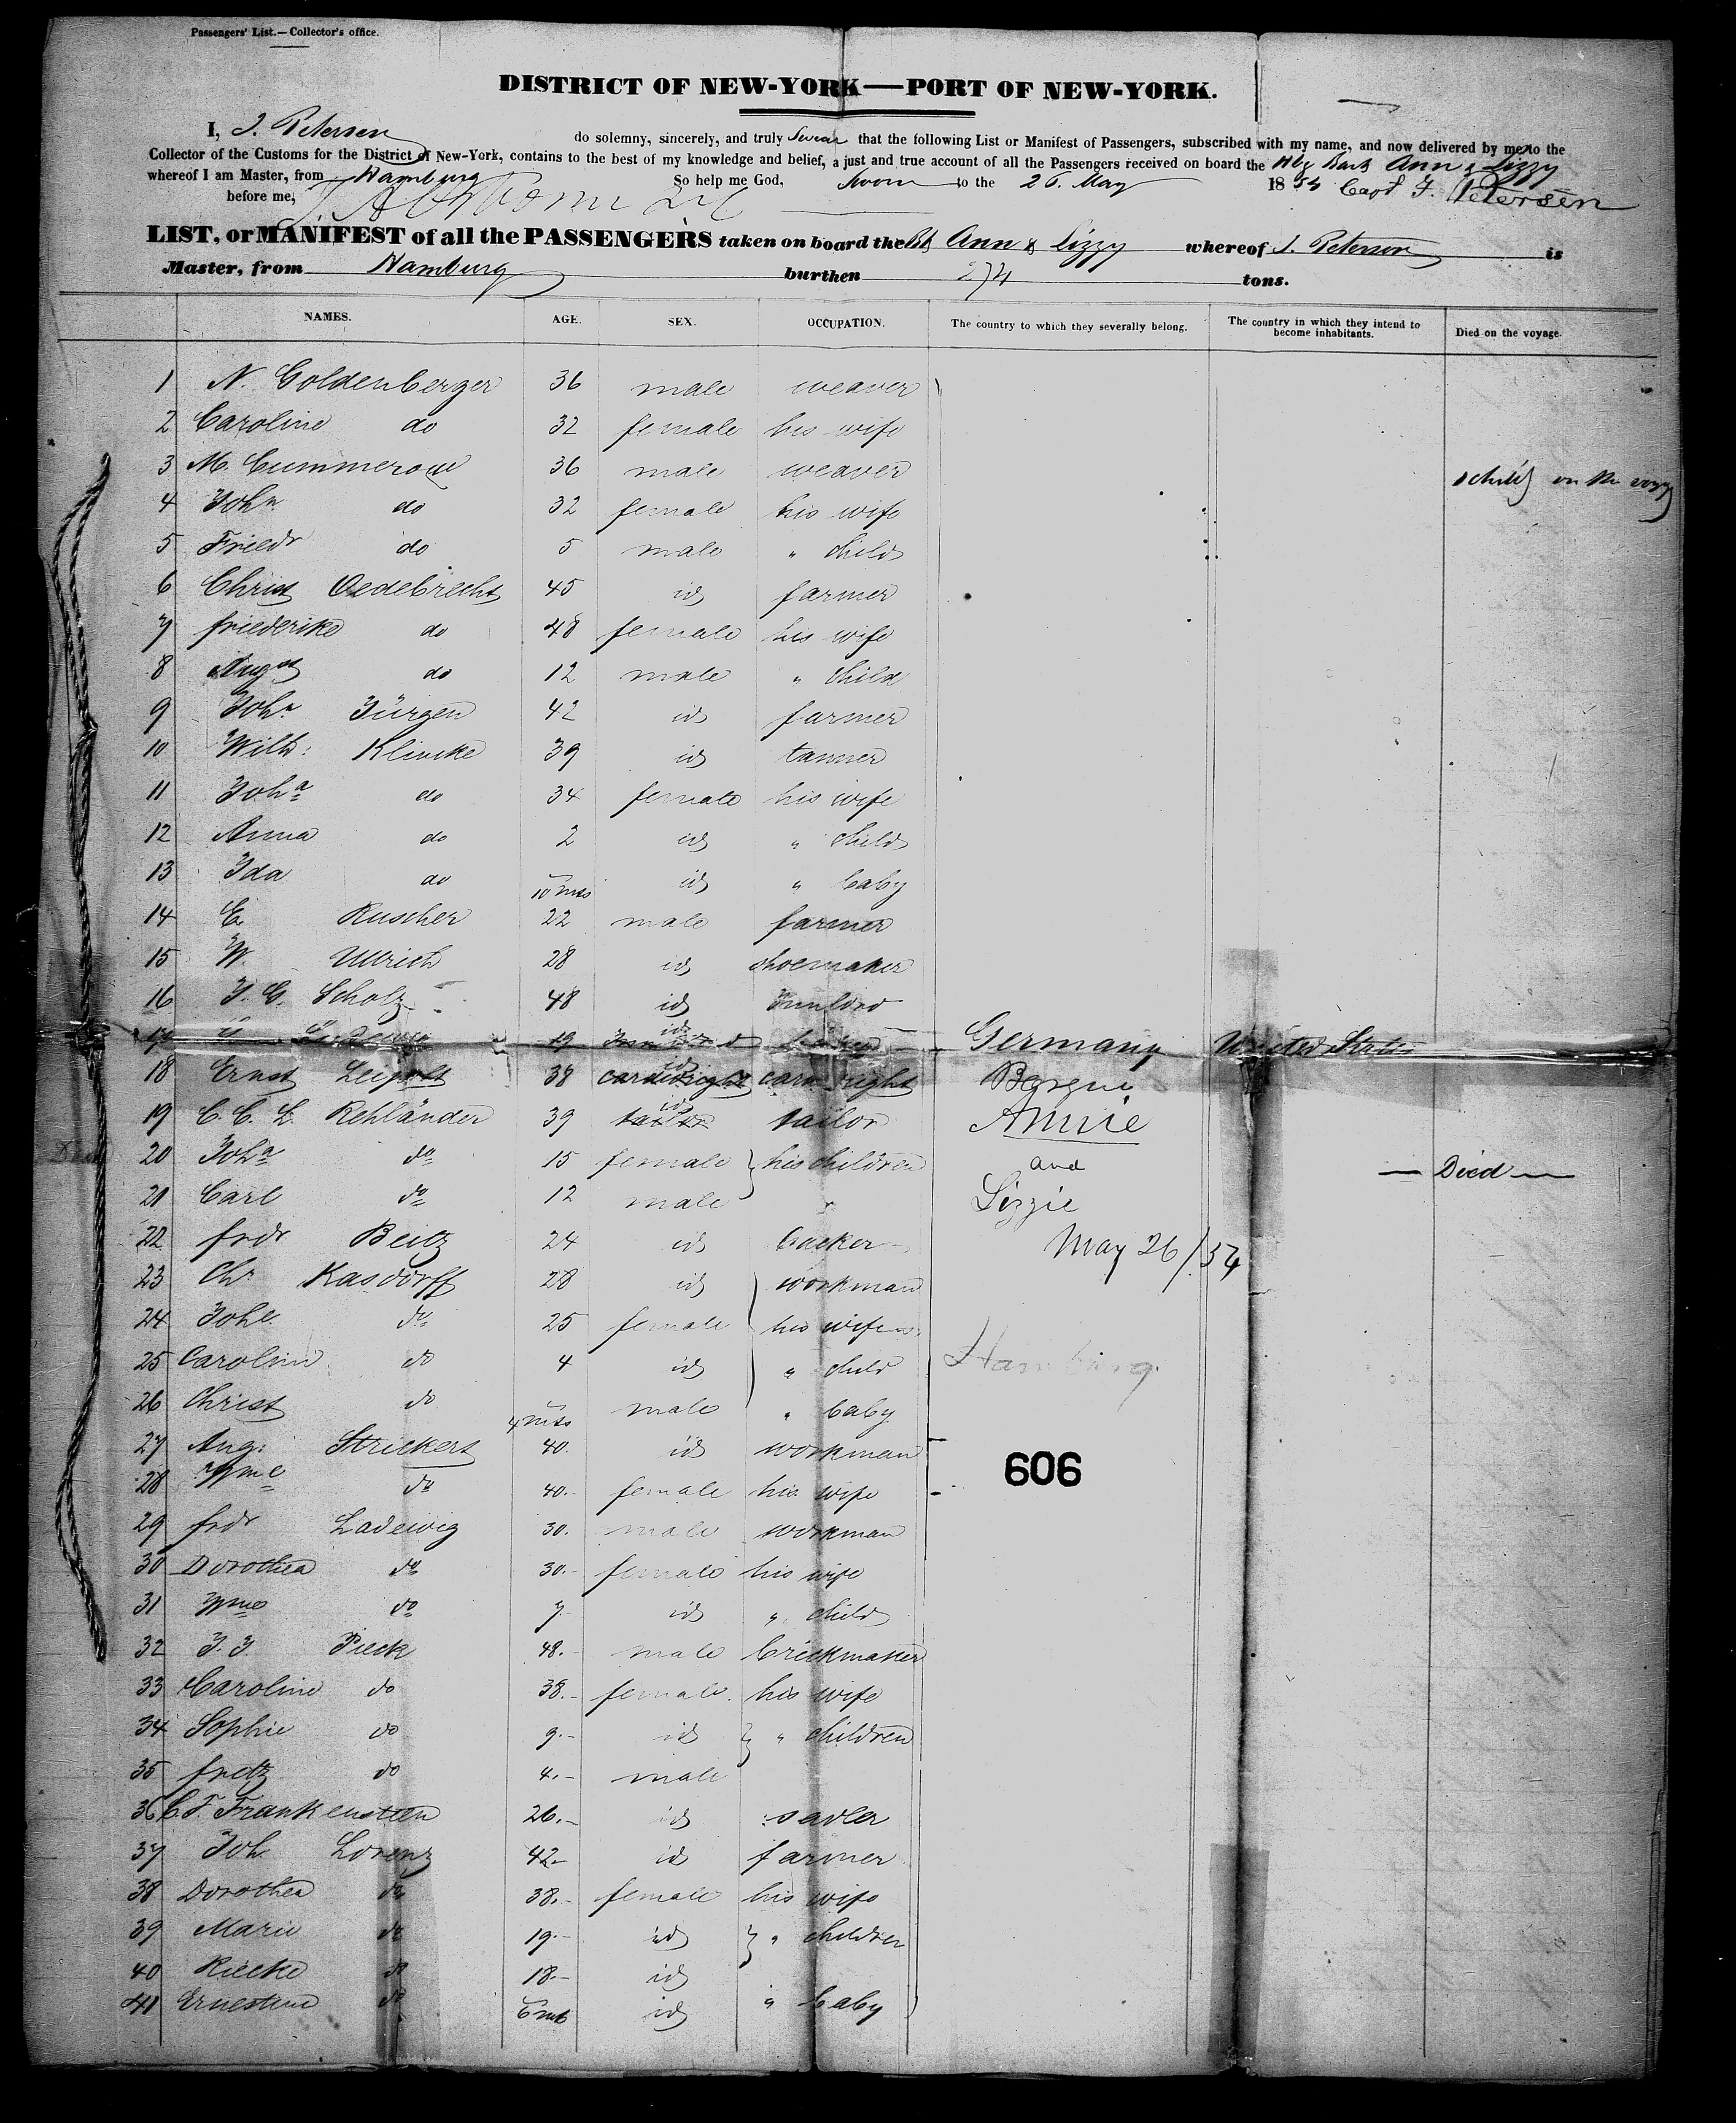 Passengers' List.—Collector's office.
DISTRICT OF NEW-YORK—PORT OF NEW-YORK.
I, J. Petersen do solemny, sincerely, and truly Swear that the following List or Manifest of Passengers, subscribed with my name, and now delivered by me to the
Collector of the Customs for the District of New-York, contains to the best of my knowledge and belief, a just and true account of all the Passengers received on board the Hbg Bark Ann & Lizzy
whereof I am Master, from Hamburg So help me God, Sworn to the 26 May 1854 Capt J. Petersen
before me,
LIST, or MANIFEST of all the PASSENGERS taken on board the Ann & Lizzy whereof J. Petersen is
Master, from Hamburg burthen 274 tons.
NAMES. AGE. SEX. OCCUPATION. The country to which they severally belong. The country in which they intend to become inhabitants. Died on the voyage.
1 N. Goldenberger 36 male weaver
2 Caroline do 32 female his wife
3 M. Cummerow 36 male weaver
4 Joh.n do 32 female his wife child on the
5 Friedr do 5 male " child
6 Christ Oedebrecht 45 id farmer
7 friederike do 48 female his wife
8 August do 12 male " child
9 Joh.n Jürgen 42 id farmer
10 Wilh: Klincke 39 id tanner
11 Joh.a do 34 female his wife
12 Anna do 2 id " child
13 Ida do 10 mts id " baby
14 C. Ruscher 22 male farmer
15 W. Ullrich 28 id shoemaker
16 J. G. Scholz 48 id
17 19 id Germany United States
18 Ernst Leipolt 38 cartwright id cartwright Barque
19 C. C. L. Rehländer 39 tailor id tailor Annie
20 Joh.a do 15 female his children and — Died —
21 Carl do 12 male Lizzie
22 frdr Beitz 24 id backer May 26/54
23 Chr. Kasdorff 28 id workman
24 Joh.e do 25 female his wife
25 Carolina do 4 id " child Hamburg.
26 Christ do 4 mts male " baby
27 Aug: Strickert 40. id workman
606
28 do 40.- female his wife
29 frdr Ladewig 30. male workman
30 Dorothea do 30.- female his wife
31 do 7.- id " child
32 J. J. Pieck 48.- male brickmaker
33 Caroline do 38.- female his wife
34 Sophie do 9.- id " children
35 fritz do 4.- male
36 C. F. Frankenstien 26.- id sadler
37 Joh. Lorenz 42- id farmer
38 Dorothea do 38.- female his wife
39 Marie do 19.- id " children
40 Riecke do 18.- id
41 Ernestine do 6 mts id " baby